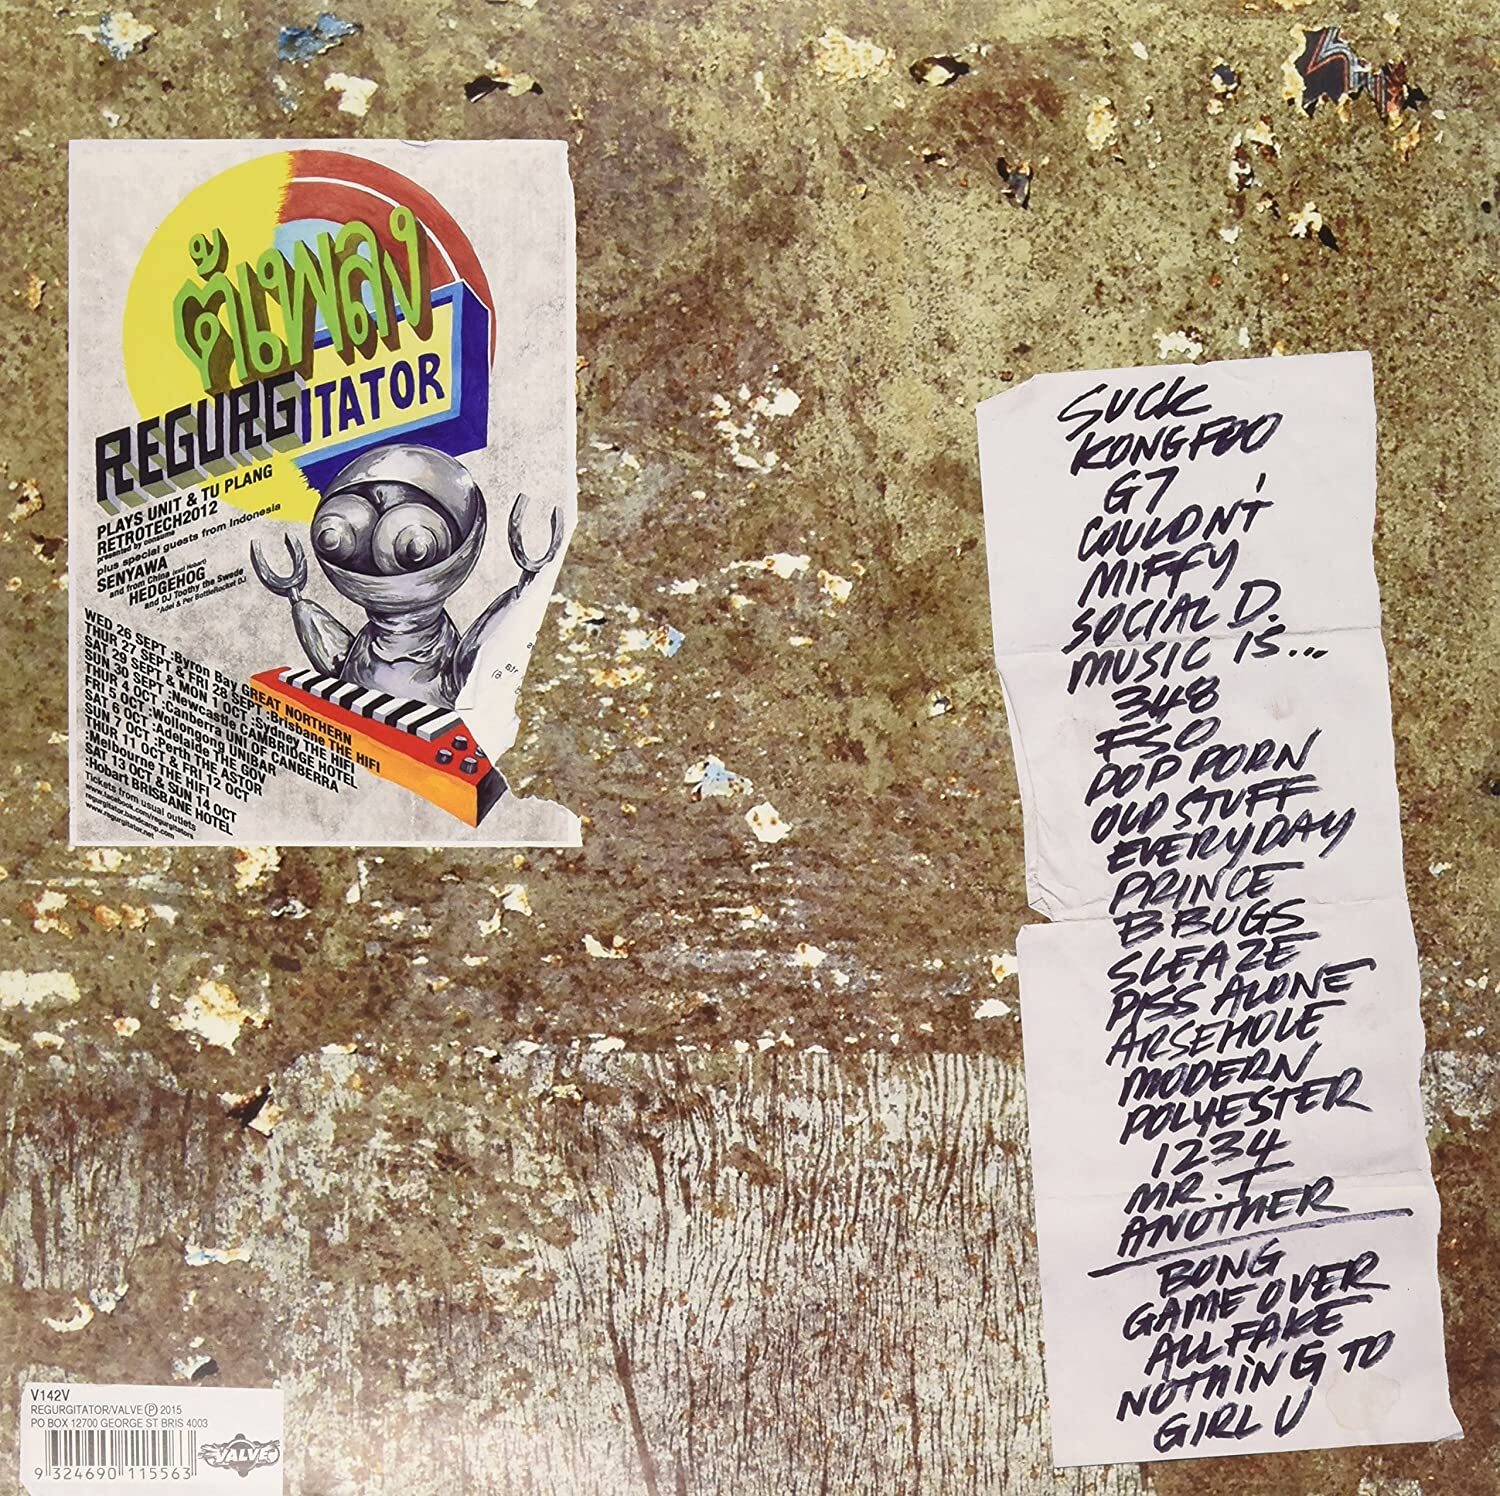 ตู้เพลง
REGURGITATOR
PLAYS UNIT & TU PLANG
RETROTECH2012
presented by consume
plus special guests from Indonesia
SENYAWA
and from China (excl Hobart)
HEDGEHOG
and DJ Toothy the Swede
*Adel & Per BottleRocket DJ
WED 26 SEPT :Byron Bay GREAT NORTHERN
THUR 27 SEPT & FRI 28 SEPT :Brisbane THE HIFI
SAT 29 SEPT & MON 1 OCT :Sydney THE HIFI
SUN 30 SEPT :Newcastle CAMBRIDGE HOTEL
THUR 4 OCT :Canberra UNI OF CANBERRA
FRI 5 OCT :Wollongong UNIBAR
SAT 6 OCT :Adelaide THE GOV
SUN 7 OCT :Perth THE ASTOR
THUR 11 OCT & FRI 12 OCT
:Melbourne THE HIFI
SAT 13 OCT & SUN 14 OCT
:Hobart BRISBANE HOTEL
Tickets from usual outlets
www.facebook.com/regurgitators
regurgitator.bandcamp.com
www.regurgitator.net
SUCK
KONGFOO
G7
COULDN'T
MIFFY
SOCIAL D.
MUSIC IS...
348
FSO
POP PORN
OLD STUFF
EVERYDAY
PRINCE
B BUGS
SLEAZE
PISS ALONE
ARSEHOLE
MODERN
POLYESTER
1234
MR. T
ANOTHER
BONG
GAME OVER
ALL FAKE
NOTHING TO
GIRL U
V142V
REGURGITATOR/VALVE Ⓟ 2015
PO BOX 12700 GEORGE ST BRIS 4003
9 324690 115563
VALVE